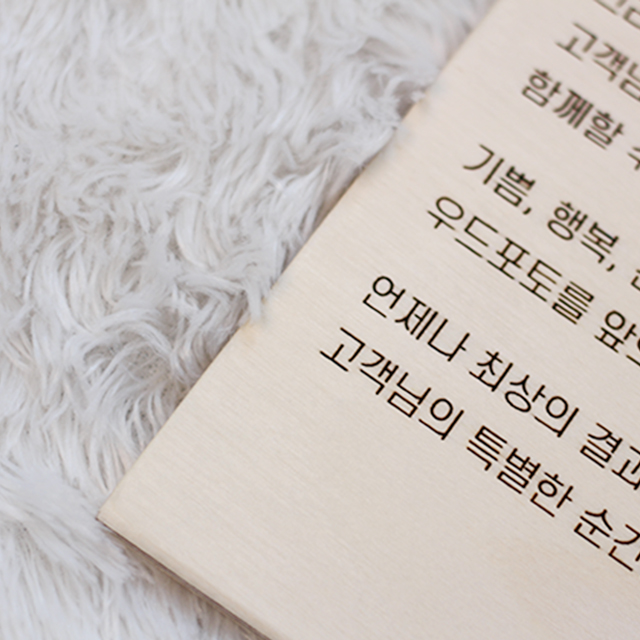 고객님
함께할 수
기쁨, 행복,
우드포토를 앞
언제나 최상의 결과
고객님의 특별한 순간